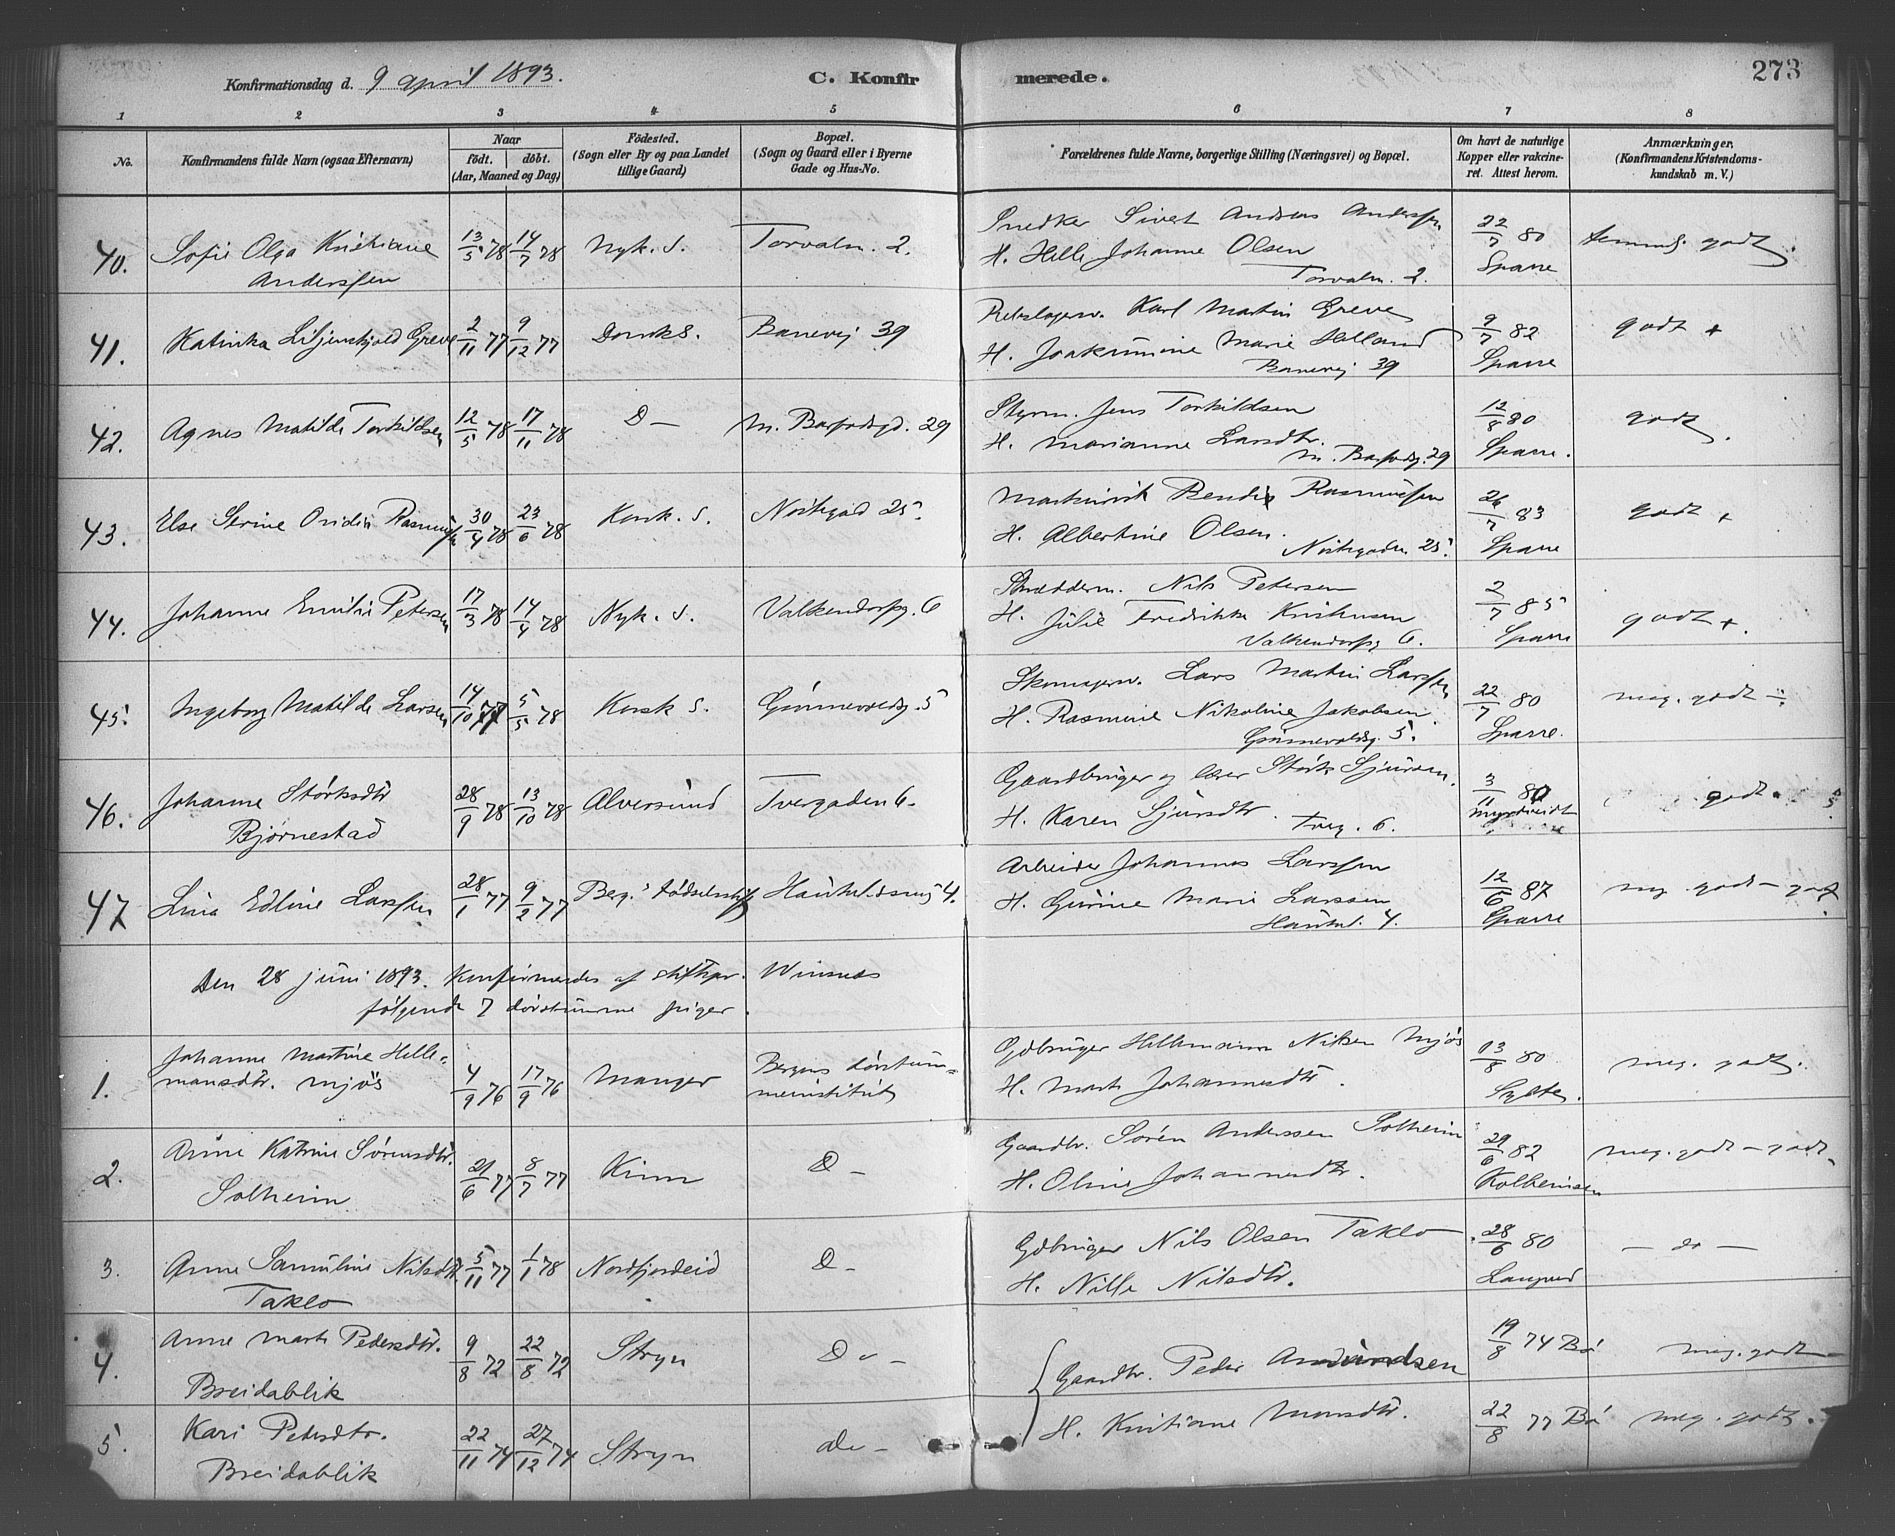 Konfirmationsdag d. 9 april 1893. C. Konfirmerede. 273
1 2 3 4 5 6 7 8
No. Konfirmandens fulde Navn (ogsaa Efternavn) Naar födt. döbt. (Aar, Maaned og Dag) Födested. (Sogn eller By og paa Landet tillige Gaard) Bopæl. (Sogn og Gaard eller i Byerne Gade og Hus-No. Forældrenes fulde Navne, borgerlige Stilling (Næringsvei) og Bopæl. Om havt de naturlige Kopper eller vakcineret. Attest herom. Anmærkninger. (Konfirmandens Kristendomskundskab m. V.)
40. Sofie Olga Kristiane 13/5 78 14/7 78 Nyk. S. Torvalm. 2. Snedker Sivert Andreas Anderssen 22/7 80 temml. godt.
Anderssen H. Helle Johanne Olsen Sparre
Torvalm. 2.
41. Katinka Liljenskjold Greve 2/11 77 9/12 77 Domk S. Banevej 39 Karl Martin Greve 9/7 82 godt +
H. Joakimine Marie Helland Sparre
Banevej 39
42. Agnes Matilde Torkildsen 12/5 78 17/11 78 D — 29 Styrm. Jens Torkildsen 12/8 80 godt.
H. Marianne Larsdtr. Sparre.
29
43. Else Serine Rasmussen 30/4 78 23/6 78 Korsk. S. Nøstegad 25. Rasmussen 26/7 83 godt +
H. Albertine Olsen. Sparre
Nøstegaden 25.
44. Johanne Emilie Petersen 17/3 78 14/4 78 Nyk. S. Valkendorfsg. 6 Skrædderm. Nils Petersen 2/7 85 godt +.
H. Julie Fredrikke Kristensen Sparre
Valkendorfsg 6.
45. Ingeborg Matilde Larsen 14/10 77 5/5 78 Korsk S. 5 Skomagersv. Lars Martin Larssen 22/7 80 meg. godt ÷
H. Rasmine Nikoline Jakobsen. Sparre.
5.
46. Johanne Størksdtr 28/9 78 13/10 78 Alversund Tvergaden 6. Gaardbruger og Størk Sjursen. 3/11 80 godt.
Bjørnestad H. Karen Sjursdtr. Tverg. 6.
47. Lina Edline Larssen 28/1 77 9/2 77 Berg. Fødselsstift 4. Arbeider Johannes Larssen 12/6 87 meg. godt — godt.
H. Gurine Marie Larssen Sparre
4.
Den 28 juni 1893. Konfirmeredes af stiftspr. Winsnes
følgende 7 døvstumme piger.
1. Johanne Martine Hellemansdtr. Mjøs 4/9 76 17/9 76 Manger Bergens døvstummeinstitut Gdbruger Hellemann Nilsen Mjøs 13/8 80 meg. godt.
H. Marte Johannesdtr. Sylte.
2. Anne Katrine Sørensdtr. 21/6 77 8/7 77 Kinn D — Gaardbr. Søren Anderssen Solheim 29/6 82 meg. godt — godt
Solheim H. Oline Johannesdtr. Kolbeinsen
3. Anne Samuline Nilsdtr 5/11 77 1/1 78 Nordfjordeid D — Gdbruger Nils Olsen Taklo 28/6 80 — do —
Taklo H. Nille Nilsdtr.
4. Anne Marte Pedersdtr. 9/8 72 22/8 72 Stryn Do — Gaardbr. Peder Amundsen 19/8 74 Bø meg. godt
Breidablik
5. Kari Pedersdtr. 22/11 74 27/12 74 Stryn do — H. Kristiane Monsdtr. 22/8 77 Bø meg. godt.
Breidablik